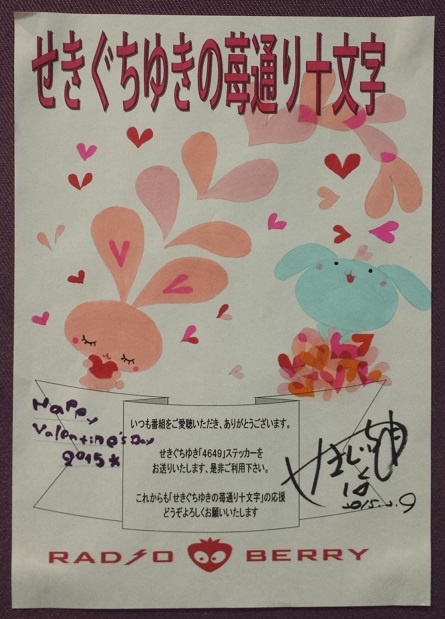 せきぐちゆきの苺通り十文字
いつも番組をご愛聴いただき、ありがとうございます。
せきぐちゆき「4649」ステッカーを
お送りいたします、是非ご利用下さい。
これからも「せきぐちゆきの苺通り十文字」の応援
どうぞよろしくお願いいたします
Happy
Valentine's Day
2015
RADIO BERRY